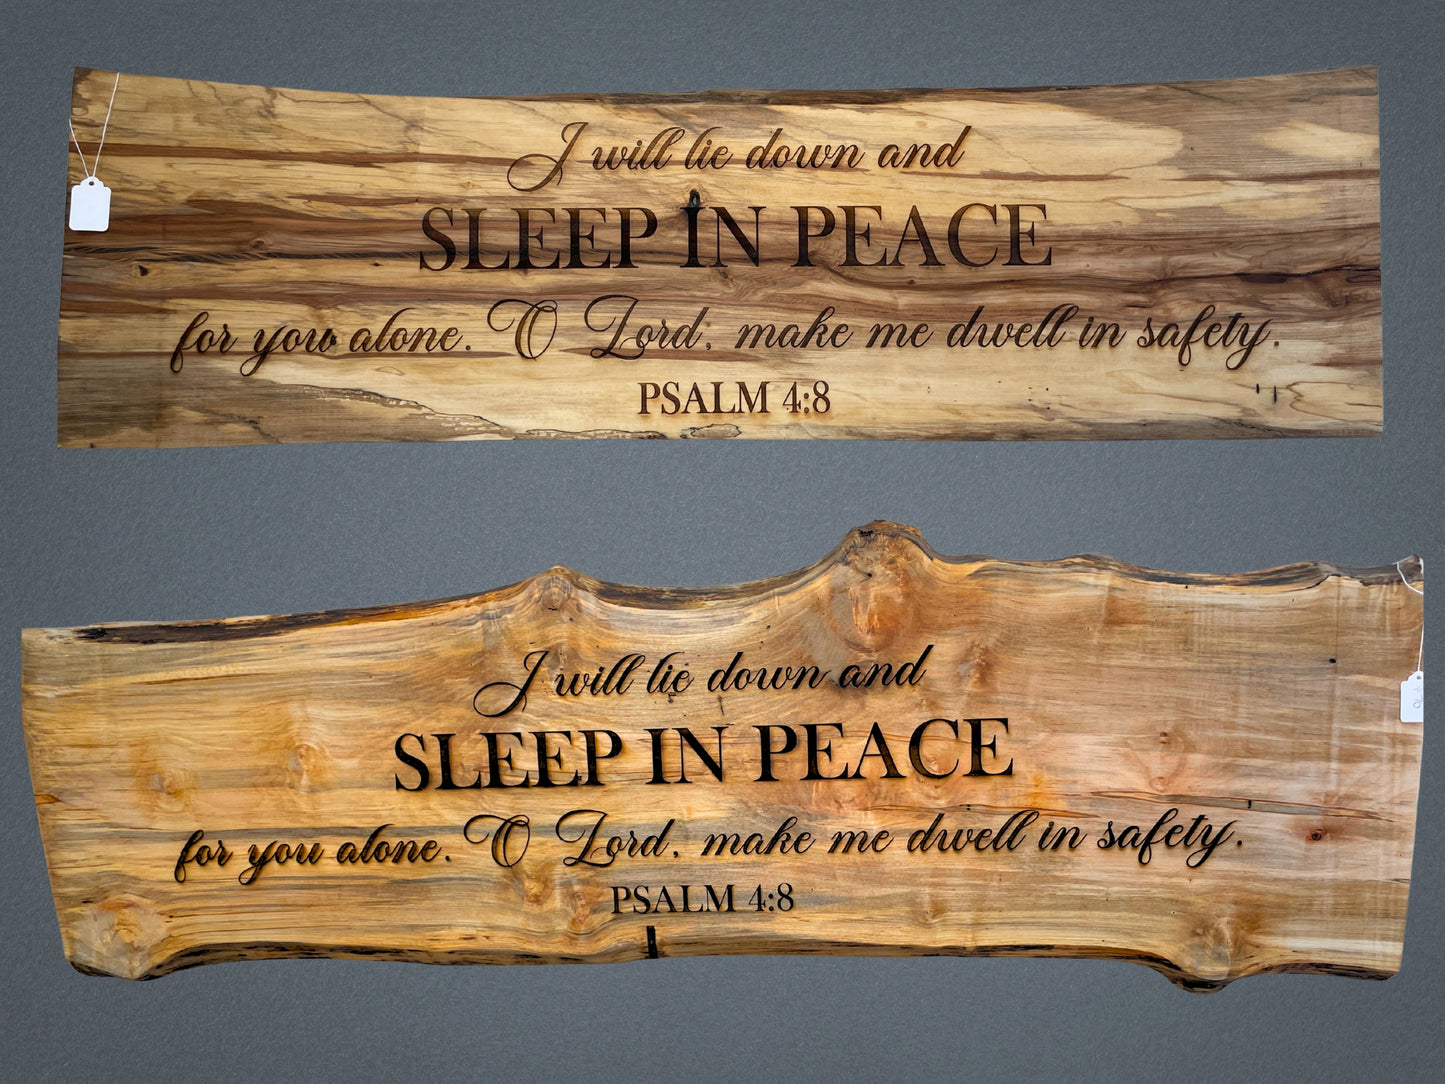 I will lie down and
SLEEP IN PEACE
for you alone. O Lord, make me dwell in safety.
PSALM 4:8
I will lie down and
SLEEP IN PEACE
for you alone. O Lord, make me dwell in safety.
PSALM 4:8